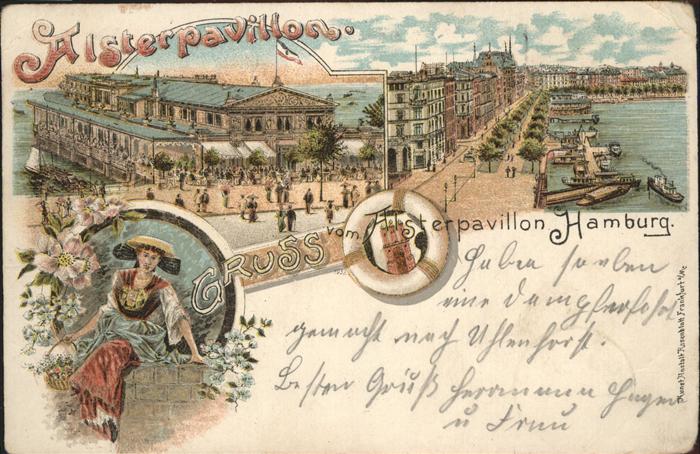 Alsterpavillon.
Gruss vom Alsterpavillon Hamburg.
Haben soeben
eine Dampferfahrt
gemacht nach Uhlenhorst.
Besten Gruß Herrmann Hagen
u Frau
Kunst Anstalt Rosenblatt Frankfurt a/M.